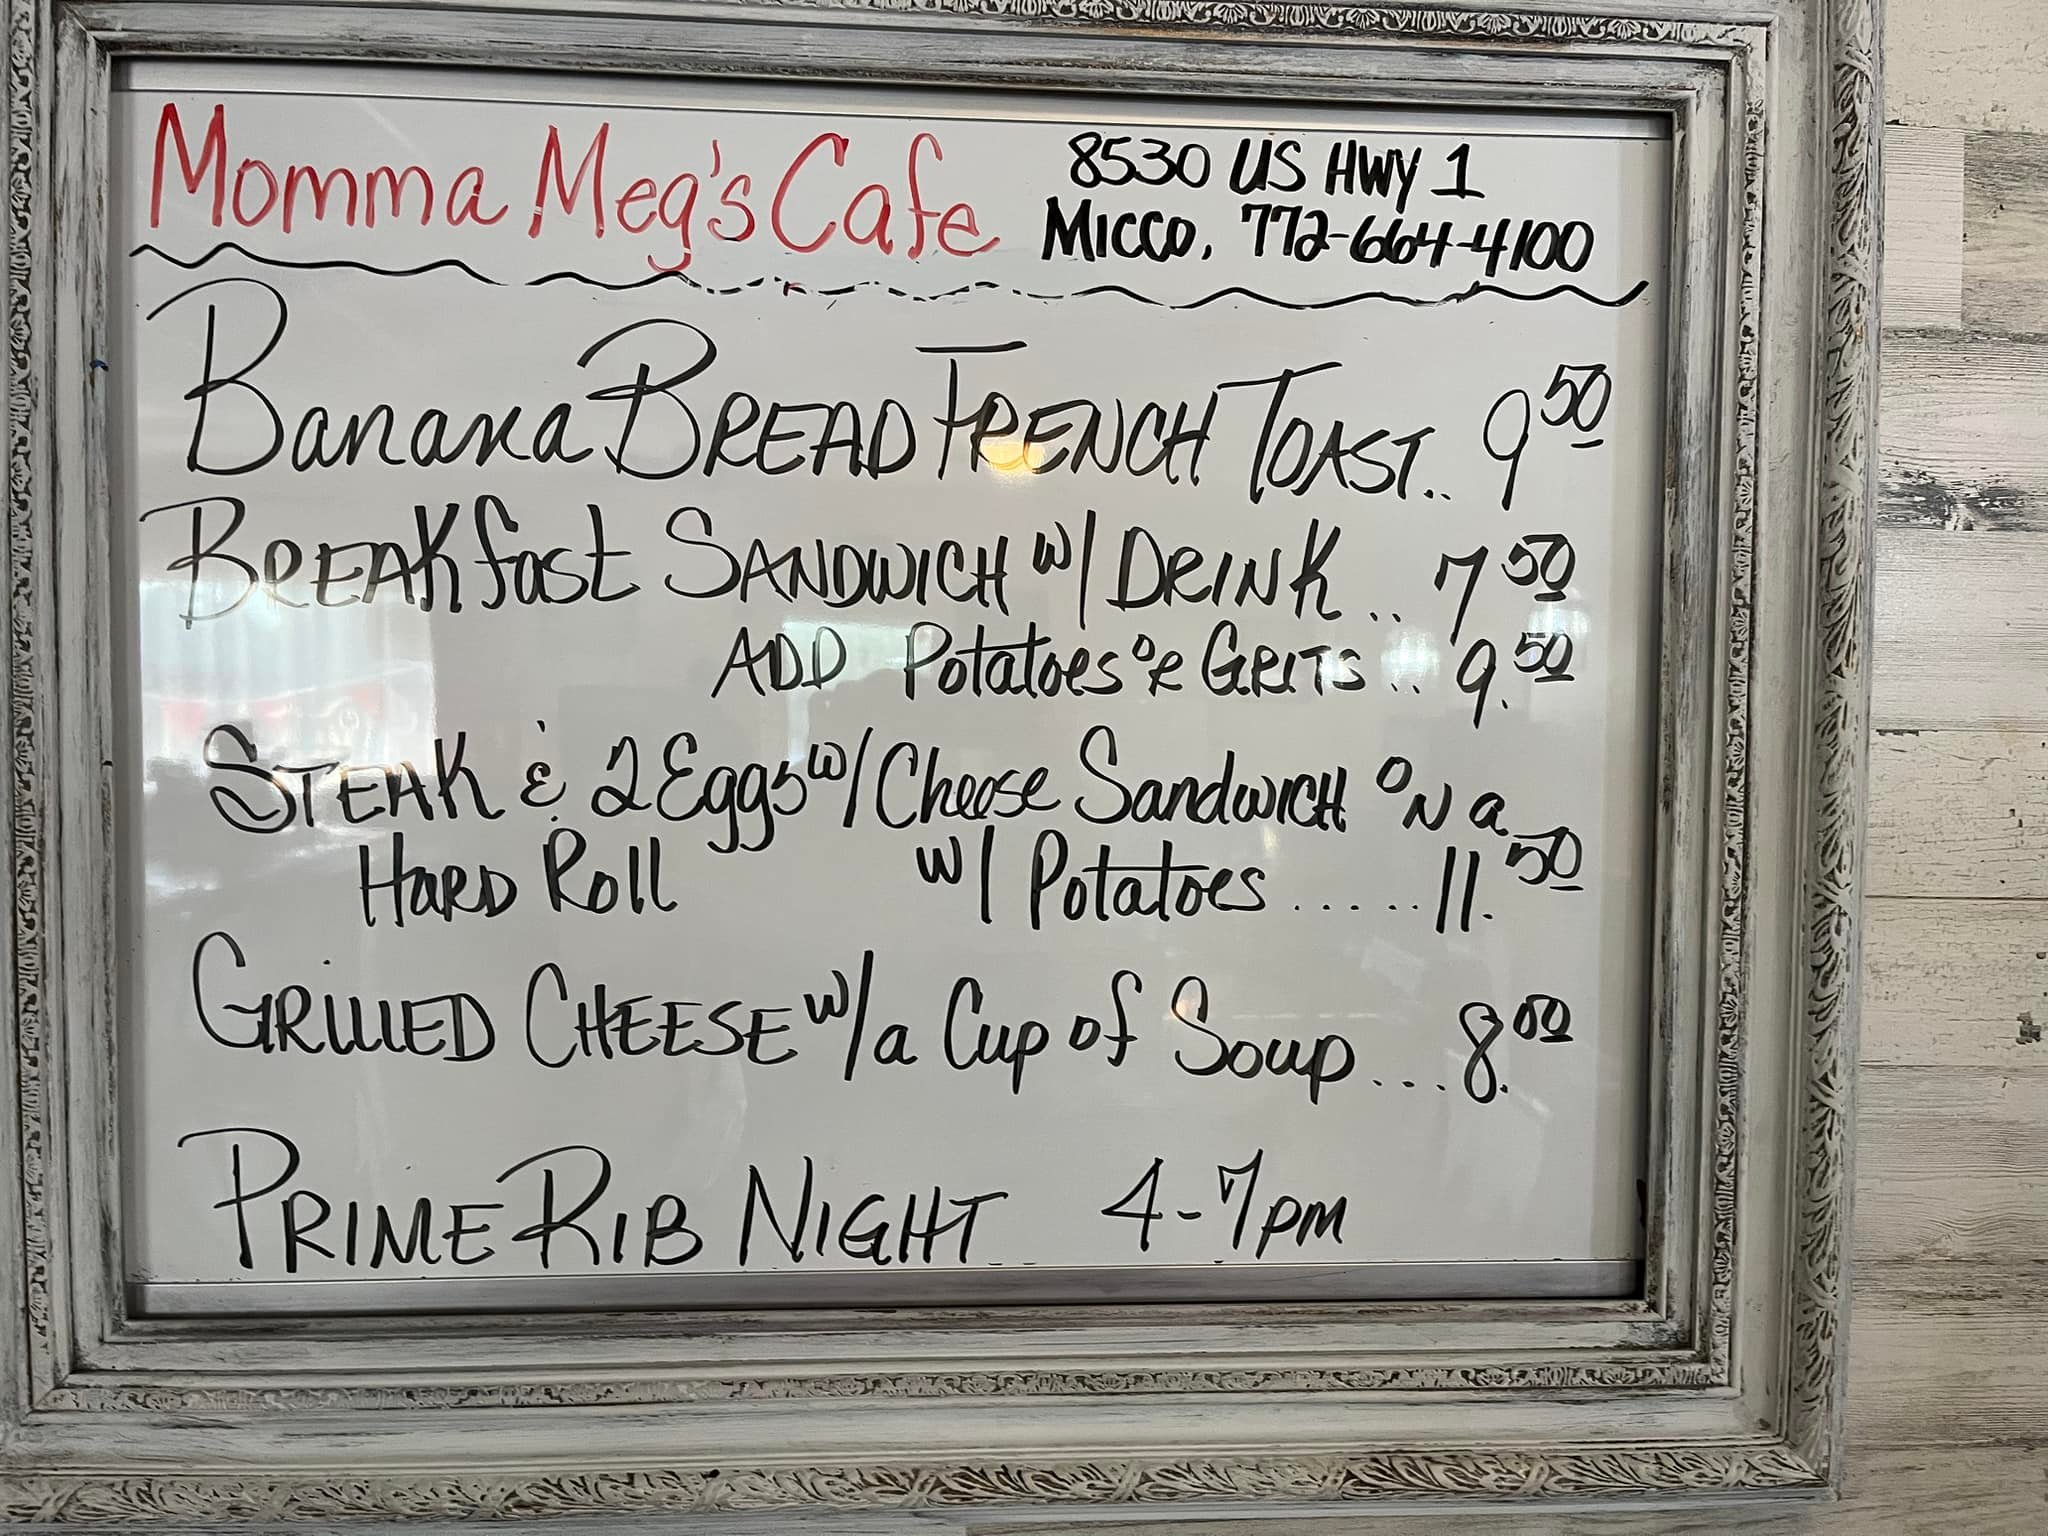 Momma Meg's Cafe
8530 US HWY 1
MICCO, 772-664-4100
Banana BREAD FRENCH TOAST.. 9 50
BREAKfast SANDWICH w/ DRINK.. 7 50
ADD Potatoes OR GRITS.. 9.50
STEAK & 2 Eggs w/ Cheese SandwICH ON a
HARD Roll w/ Potatoes ..... 11.50
GRILLED CHEESE w/a Cup of Soup ... 8.00
PRIME RIB NIGHT 4-7pm